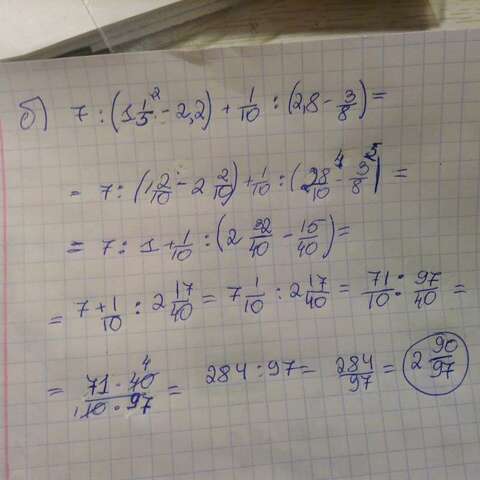 б) 7 : (1 1/5 ² - 2,2) + 1/10 : (2,8 - 3/8) =
= 7 : (1 2/10 - 2 2/10) + 1/10 : (2 8/10 ⁴ - 3/8 ⁵) =
= 7 : 1 + 1/10 : (2 32/40 - 15/40) =
= 7 + 1/10 : 2 17/40 = 7 1/10 : 2 17/40 = 71/10 : 97/40 =
= 71 · 40 ⁴ / 10 · 97 = 284 : 97 = 284/97 = 2 90/97